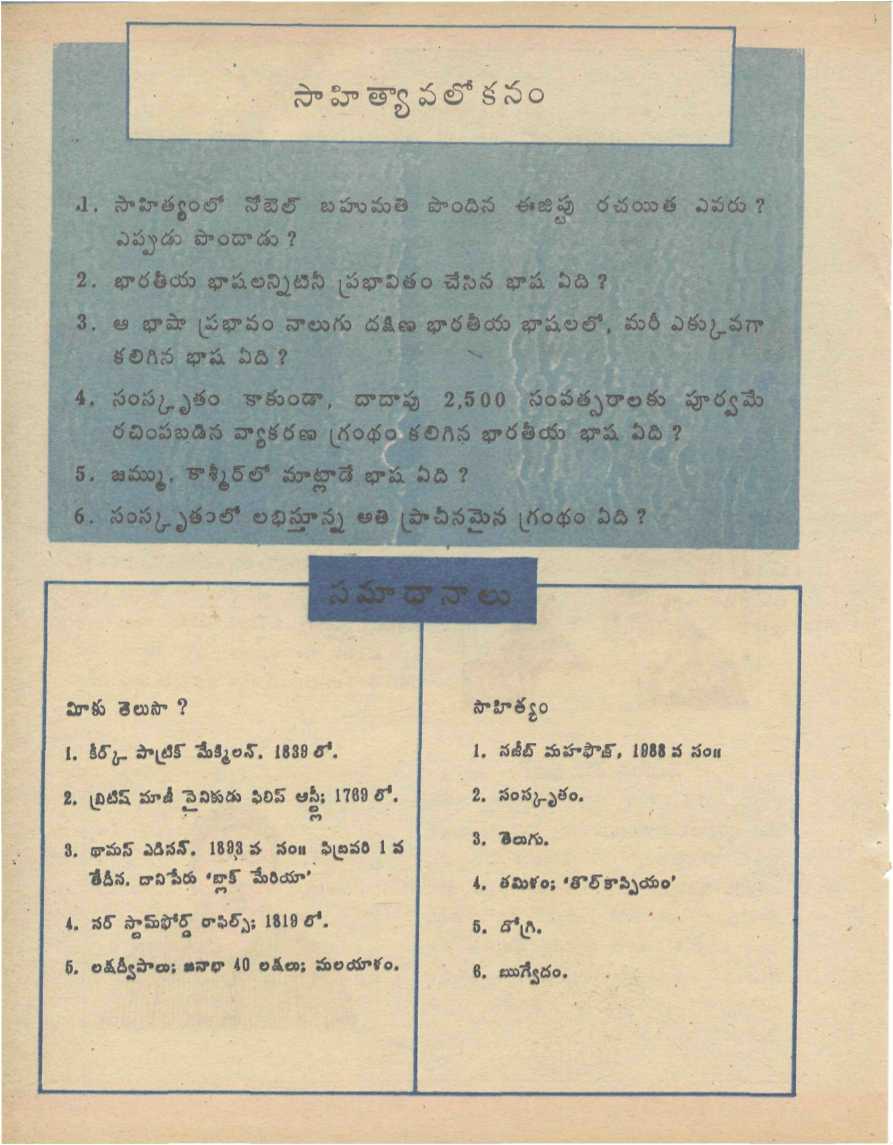 సాహిత్యావలోకనం
1. సాహిత్యంలో నోబెల్ బహుమతి పొందిన ఈజిప్టు రచయిత ఎవరు ?
ఎప్పుడు పొందాడు ?
2. భారతీయ భాషలన్నిటినీ ప్రభావితం చేసిన భాష ఏది ?
3. ఆ భాషా ప్రభావం నాలుగు దక్షిణ భారతీయ భాషలలో, మరీ ఎక్కువగా
కలిగిన భాష ఏది ?
4. సంస్కృతం కాకుండా, దాదాపు 2,500 సంవత్సరాలకు పూర్వమే
రచింపబడిన వ్యాకరణ గ్రంథం కలిగిన భారతీయ భాష ఏది ?
5. జమ్ము, కాశ్మీర్‌లో మాట్లాడే భాష ఏది ?
6. సంస్కృతంలో లభిస్తూన్న అతి ప్రాచీనమైన గ్రంథం ఏది ?
సమాధానాలు
మీకు తెలుసా ?
1. కీర్క్ పాట్రిక్ మేక్మిలన్. 1839 లో.
2. బ్రిటిష్ మాజీ సైనికుడు ఫిలిప్ ఆస్ట్లీ; 1769 లో.
3. థామస్ ఎడిసన్. 1893 వ సం॥ ఫిబ్రవరి 1 వ
తేదీన. దానిపేరు ‘బ్లాక్ మేరియా’
4. సర్ స్టామ్‌ఫోర్డ్ రాఫిల్స్; 1819 లో.
5. లక్షద్వీపాలు; జనాభా 40 లక్షలు; మలయాళం.
సాహిత్యం
1. నజీబ్ మహఫౌజ్, 1988 వ సం॥
2. సంస్కృతం.
3. తెలుగు.
4. తమిళం; ‘తొల్‌కాప్పియం’
5. డోగ్రి.
6. ఋగ్వేదం.